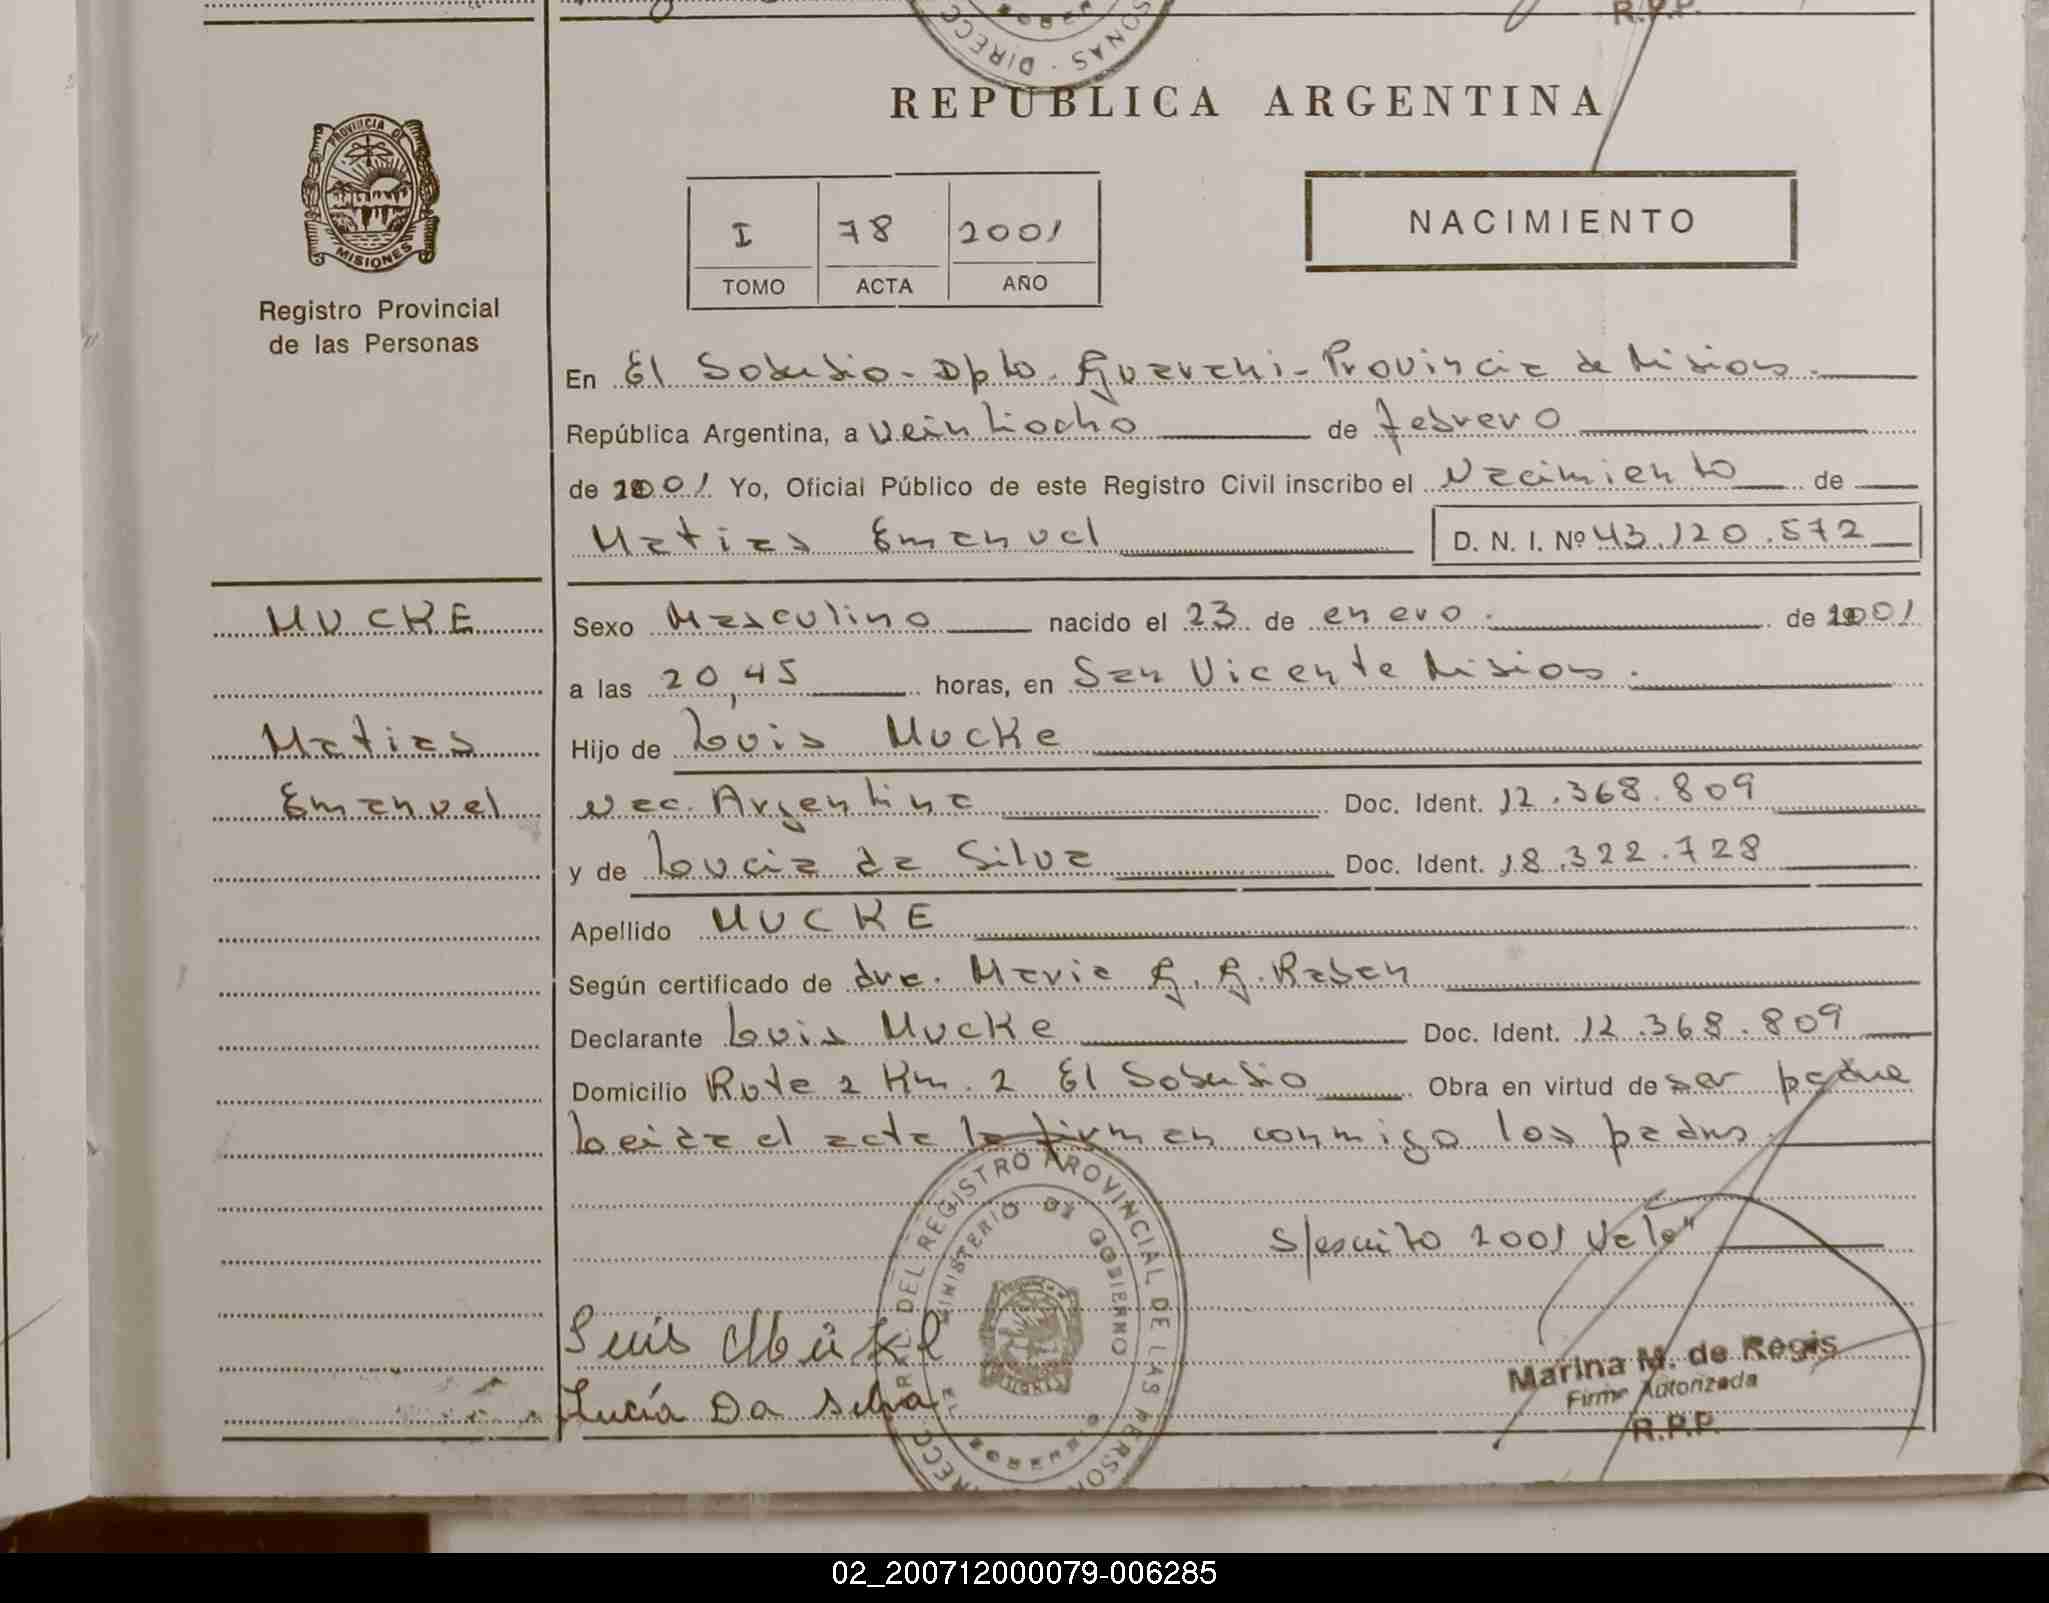 R.P.P.
DIRECC
ONAS
REPUBLICA ARGENTINA
PROVINCIA DE
MISIONES
Registro Provincial
de las Personas
I 78 2001
TOMO ACTA AÑO
NACIMIENTO
En El Soberbio - Dpto. Guarani - Provincia de Misiones.
República Argentina, a veintiocho de febrero
de 2001 Yo, Oficial Público de este Registro Civil inscribo el Nacimiento de
Matias Emanuel D. N. I. Nº 43.120.572
MUCKE
Matias
Emanuel
Sexo Masculino nacido el 23 de enero. de 2001
a las 20,45 horas, en San Vicente Misiones.
Hijo de Luis Mucke
Nac. Argentina Doc. Ident. 12.368.809
y de Lucia da Silva Doc. Ident. 18.322.728
Apellido MUCKE
Según certificado de dra. Maria G. G. Raban
Declarante Luis Mucke Doc. Ident. 12.368.809
Domicilio Ruta 2 Km. 2 El Soberbio Obra en virtud de ser padre
Leida el acta la firman conmigo los padres.
S/escrito 2001 Vale"
Luis Mückl
Lucía Da Silva
REGISTRO PROVINCIAL DE LAS PERSONAS
MINISTERIO DE GOBIERNO
Marina M. de Regis
Firma Autorizada
R.P.P.
02_200712000079-006285